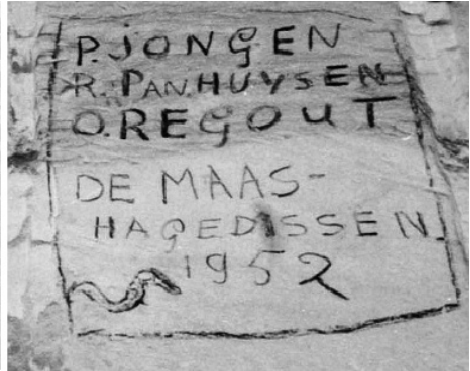 P. JONGEN
R. PANHUYSEN
O. REGOUT
DE MAAS-
HAGEDISSEN
1952